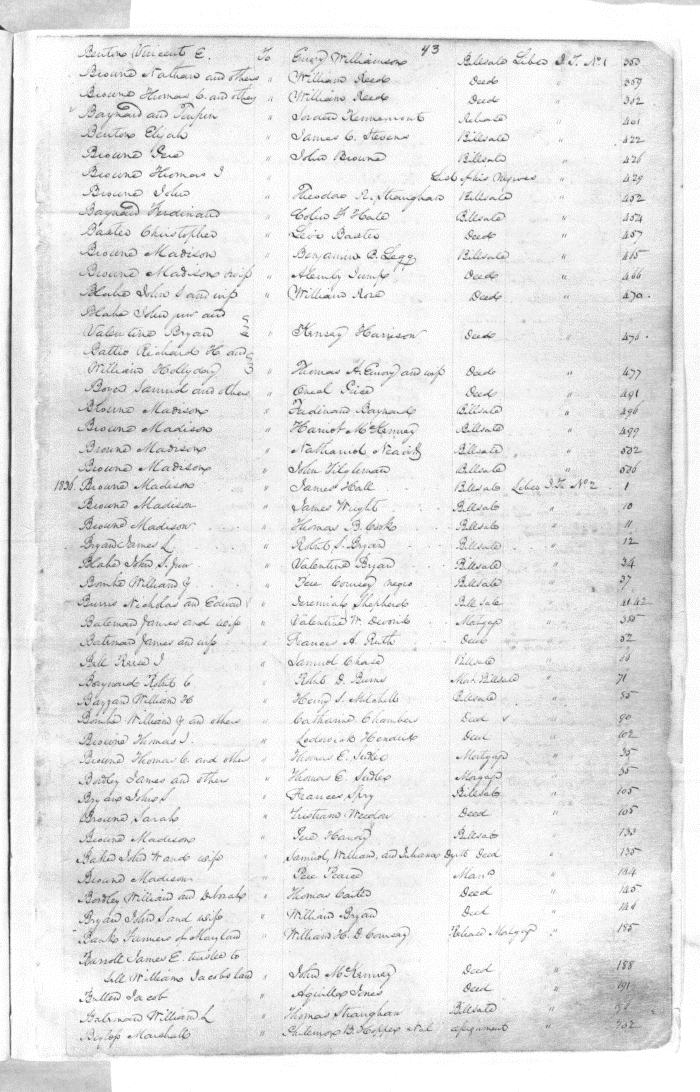 43
Benton Vincent E. To Emory Williamson Billsale Liber J.T. No 1 350
Browne Nathan and others " William Reed Deed " 359
Browne Thomas C. and others " William Reed Deed " 362
Baynard and Turpin " Jordan Kennamont Release " 401
Benton Elijah " James C. Stevens Billsale " 422
Browne Pere " John Browne Billsale " 426
Browne Thomas J " List of his Negroes " 429
Browne John " Theodore R. Straughan Billsale " 452
Baynard Ferdinand " Colin F. Hale Billsale " 454
Baxter Christopher " Levi Baxter Deed " 457
Browne Madison " Benjamin B. Legg Billsale " 465
Browne Madison & wife " Alemby Jump Deed " 466
Blake John S and wife " William Rose Deed " 470
Blake John junr and
Valentine Bryan " Kensey Harrison Deed " 475
Battie Richard H. and
William Hollyday " Thomas H. Emory and wife Deed " 477
Boyer Samuel and others " Oneal Price Deed " 491
Browne Madison " Ferdinand Baynard Billsale " 496
Browne Madison " Harriot McKenney Billsale " 499
Browne Madison " Nathaniel Billsale " 502
Browne Madison " John Tilghman Billsale " 506
1836 Browne Madison " James Hall Billsale Liber J.T. No 2 1
Browne Madison " James Wright Billsale " 10
Browne Madison " Thomas B. Cook Billsale " 11
Bryan James L " Robert S. Bryan Billsale " 12
Blake John S. Junr " Valentine Bryan Billsale " 34
William G " Pere Coursey negro Billsale " 37
Burns Nicholas and Edward " Jeremiah Shepherd Billsale " 41.42
Bateman James and wife " Valentine W. Mortgage " 50
Bateman James and wife " Frances A. Ruth Deed " 52
Bell Reese J " Samuel Chase Billsale " 56
Baynard Robert C " Robt D. Burns Man. Billsale " 71
William H " Henry S. Mitchell Billsale " 85
William G and others " Catharine Chambers Deed " 90
Browne Thomas J. " Lodowick Deed " 102
Browne Thomas C. and others " Thomas E. Sudler Mortgage " 35
Bordley James and others " Thomas E. Sudler Mortgage " 35
Bryan John S " Frances Spry Billsale " 105
Browne Sarah " Tristram Weedon Deed " 105
Browne Madison " Pere Billsale " 133
Baker John W and wife " Samuel, William, and Juliana Deed " 135
Browne Madison " Pere Man. " 144
Bordley William and Deborah " Thomas Carter Deed " 145
Bryan John S and wife " William Bryan Deed " 146
Bank Farmers of Maryland " William H. D. Coursey Release Mortgage " 185
Barroll James E. trustee to
sell William Jacobs land " John McKenney Deed " 188
Butler Jacob " Aquilla Jones Deed " 191
Bateman William L " Thomas Straughan Billsale "
Marshall " Philemon B. Hopper assignment " 202